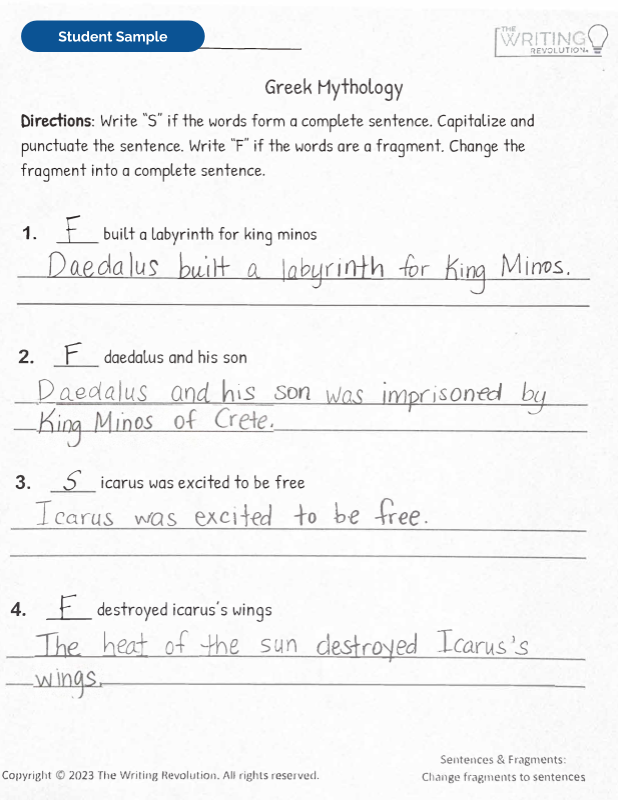 Student Sample
THE
WRITING
REVOLUTION
Greek Mythology
Directions: Write "S" if the words form a complete sentence. Capitalize and
punctuate the sentence. Write "F" if the words are a fragment. Change the
fragment into a complete sentence.
1. F built a labyrinth for king minos
Daedalus built a labyrinth for King Minos.
2. F daedalus and his son
Daedalus and his son was imprisoned by
King Minos of Crete.
3. S icarus was excited to be free
Icarus was excited to be free.
4. F destroyed icarus's wings
The heat of the sun destroyed Icarus's
wings.
Sentences & Fragments:
Copyright © 2023 The Writing Revolution. All rights reserved.
Change fragments to sentences